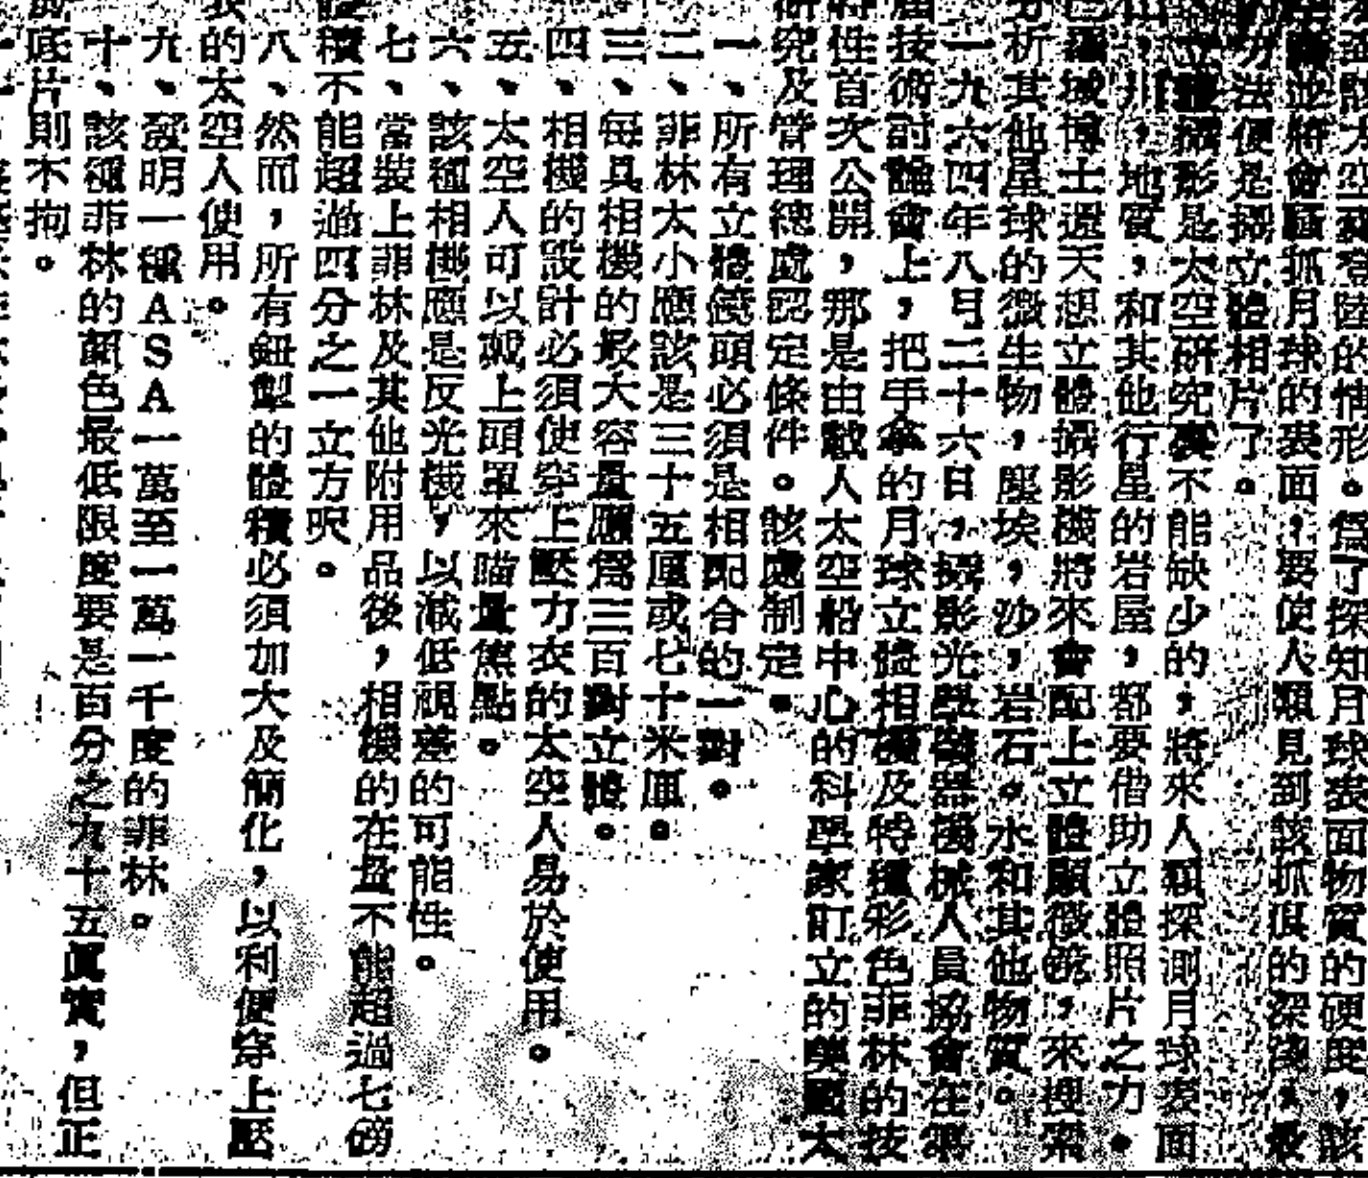 太空船登陸的情形。為了探知月球表面物質的硬度,該
並將會區抓月球的表面,要使人類見到該抓痕的深淺,最
方法便是攝立體相片了。
立體攝影是太空研究裏不能缺少的,將來人類探測月球表面
山,川,地質,和其他行星的岩層,都要借助立體照片之力。
域博士還天想立體攝影機將來會配上立體顯微鏡,來搜索
分析其他星球的微生物,塵埃,沙,岩石。水和其他物質。
一九六四年八月二十六日,攝影光學儀器機械人員協會在第
屆技術討論會上,把手拿的月球立體相機及特種彩色菲林的技
特性首次公開,那是由載人太空船中心的科學家訂立的美國太
研究及管理總處認定條件。該處制定。
一、所有立體鏡頭必須是相配合的一對。
二、菲林大小應該是三十五厘或七十米厘。
三、每具相機的最大容量應為三百對立體。
四、相機的設計必須使穿上壓力衣的太空人易於使用。
五、太空人可以戴上頭罩來瞄量焦點。
六、該種相機應是反光機,以減低視差的可能性。
七、當裝上菲林及其他附用品後,相機的在量不能超過七磅
體積不能超過四分之一立方呎。
八、然而,所有鈕掣的體積必須加大及簡化,以利便穿上壓
衣的太空人使用。
九、發明一種ASA一萬至一萬一千度的菲林。
十、該種菲林的顏色最低限度要是百分之九十五眞實,但正
底片則不拘。